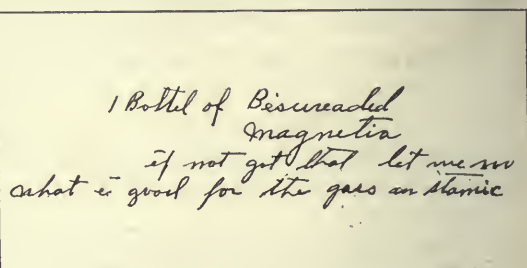 1 Bottel of Bisureaded
magnetia
if not got that let me no
what is good for the gass an stamic